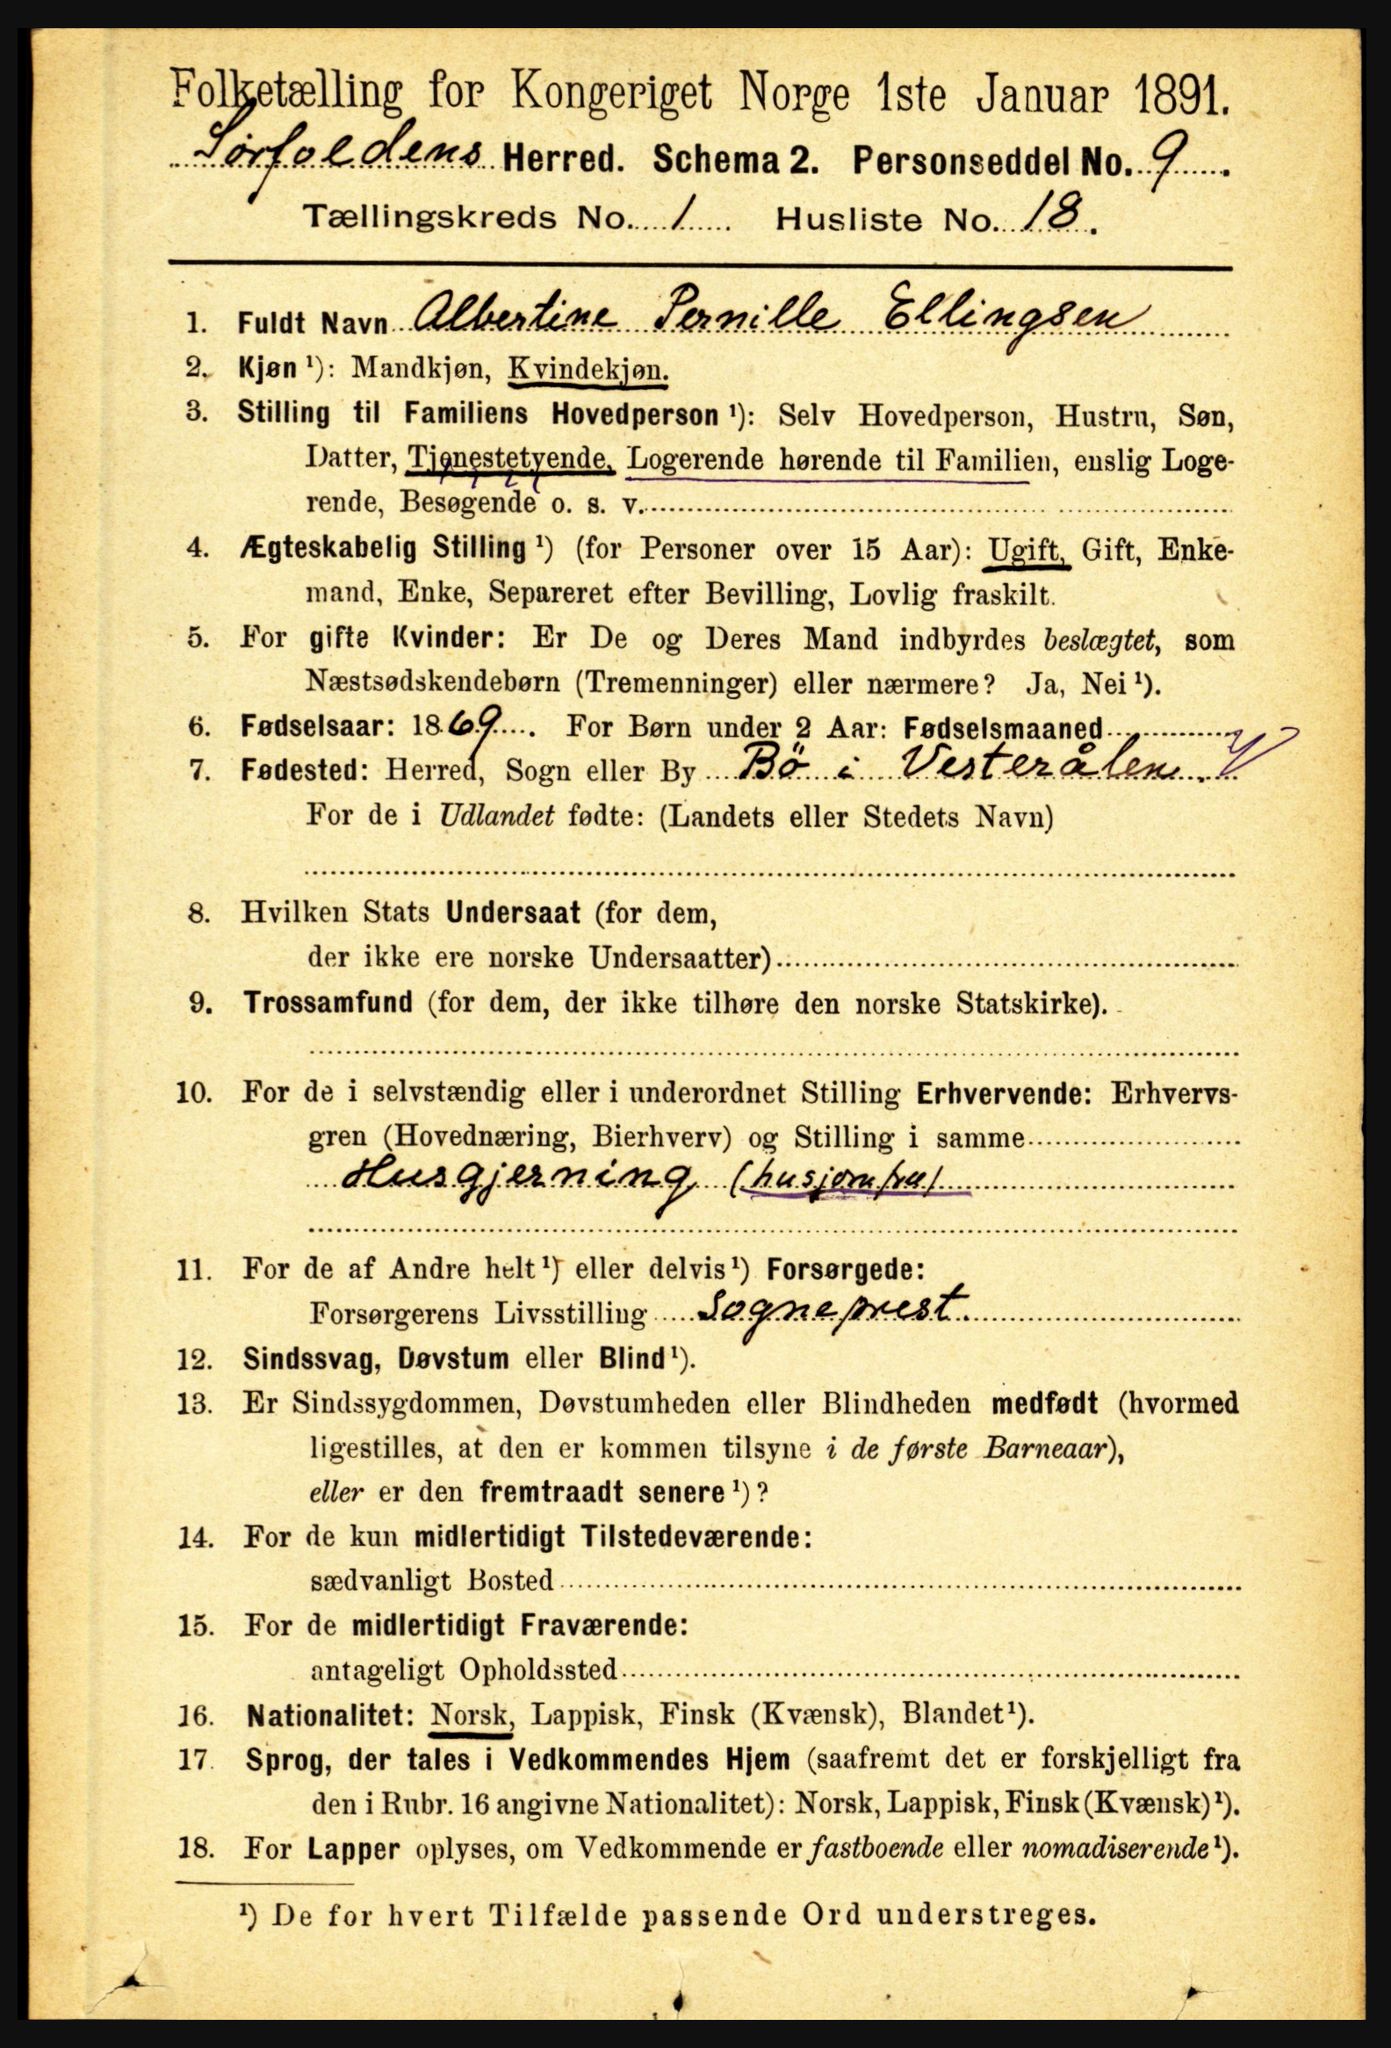 Folketælling for Kongeriget Norge 1ste Januar 1891.
Sørfoldens Herred. Schema 2. Personseddel No. 9.
Tællingskreds No. 1 Husliste No. 18.
1. Fuldt Navn Albertine Pernille Ellingsen
2. Kjøn ¹): Mandkjøn, Kvindekjøn.
3. Stilling til Familiens Hovedperson ¹): Selv Hovedperson, Hustru, Søn,
Datter, Tjenestetyende, Logerende hørende til Familien, enslig Loge-
rende, Besøgende o. s. v.
4. Ægteskabelig Stilling ¹) (for Personer over 15 Aar): Ugift, Gift, Enke-
mand, Enke, Separeret efter Bevilling, Lovlig fraskilt.
5. For gifte Kvinder: Er De og Deres Mand indbyrdes beslægtet, som
Næstsødskendebørn (Tremenninger) eller nærmere? Ja, Nei ¹).
6. Fødselsaar: 1869. For Børn under 2 Aar: Fødselsmaaned
7. Fødested: Herred, Sogn eller By Bö i Vesterålen. V
For de i Udlandet fødte: (Landets eller Stedets Navn)
8. Hvilken Stats Undersaat (for dem,
der ikke ere norske Undersaatter)
9. Trossamfund (for dem, der ikke tilhøre den norske Statskirke).
10. For de i selvstændig eller i underordnet Stilling Erhvervende: Erhvervs-
gren (Hovednæring, Bierhverv) og Stilling i samme
Husgjerning (husjomfru)
11. For de af Andre helt ¹) eller delvis ¹) Forsørgede:
Forsørgerens Livsstilling Sogneprest.
12. Sindssvag, Døvstum eller Blind ¹).
13. Er Sindssygdommen, Døvstumheden eller Blindheden medfødt (hvormed
ligestilles, at den er kommen tilsyne i de første Barneaar),
eller er den fremtraadt senere ¹)?
14. For de kun midlertidigt Tilstedeværende:
sædvanligt Bosted
15. For de midlertidigt Fraværende:
antageligt Opholdssted
16. Nationalitet: Norsk, Lappisk, Finsk (Kvænsk), Blandet ¹).
17. Sprog, der tales i Vedkommendes Hjem (saafremt det er forskjelligt fra
den i Rubr. 16 angivne Nationalitet): Norsk, Lappisk, Finsk (Kvænsk) ¹).
18. For Lapper oplyses, om Vedkommende er fastboende eller nomadiserende ¹).
¹) De for hvert Tilfælde passende Ord understreges.